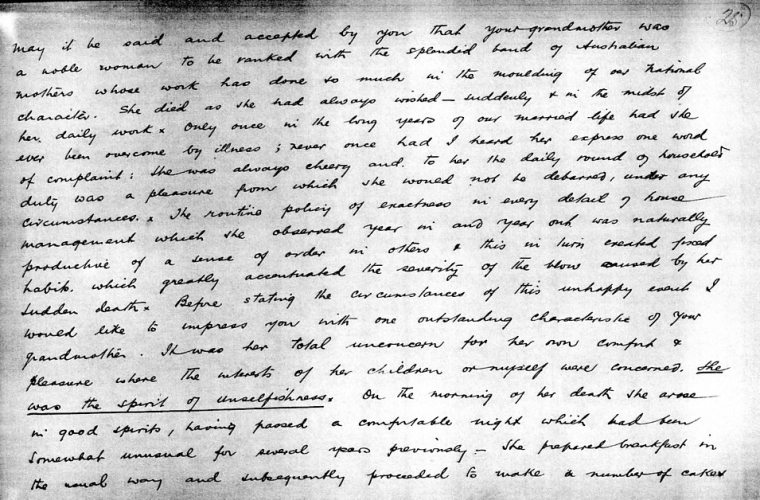 28.
may it be said and accepted by you that your grandmother was
a noble woman to be ranked with the splendid band of Australian
mothers whose work has done so much in the moulding of our national
character. She died as she had always wished – suddenly & in the midst of
her daily work x Only once in the long years of our married life had she
ever been overcome by illness ; never once had I heard her express one word
of complaint : She was always cheery and to her the daily round of household
duty was a pleasure from which she would not be debarred, under any
circumstances. x The routine policy of exactness in every detail of house
management which she observed year in and year out was naturally
productive of a sense of order in others & this in turn created fixed
habits. which greatly accentuated the severity of the blow caused by her
sudden death x Before stating the circumstances of this unhappy event I
would like to impress you with one outstanding characteristic of your
grandmother. It was her total unconcern for her own comfort &
pleasure where the interests of her children or myself were concerned. She
was the spirit of unselfishness. x On the morning of her death she arose
in good spirits, having passed a comfortable night which had been
somewhat unusual for several years previously – She prepared breakfast in
the usual way and subsequently proceeded to make a number of cakes